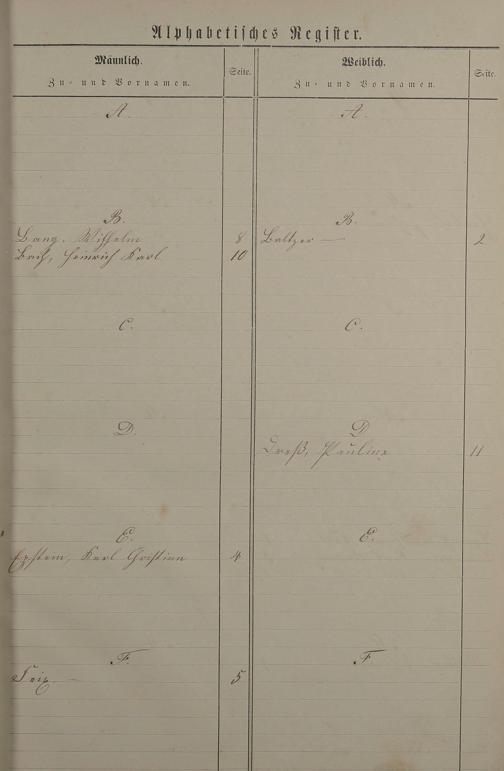 Alphabetisches Register.
Männlich.
Zu- und Vornamen.
Seite.
Weiblich.
Zu- und Vornamen.
Seite.
A.
A.
B.
B.
Bang. Wilhelm 8
Baltzer — 2
Heinrich Karl 10
C.
C.
D.
D
Dreß, Pauline 11
E.
E.
Karl Christian 4
F.
F
5